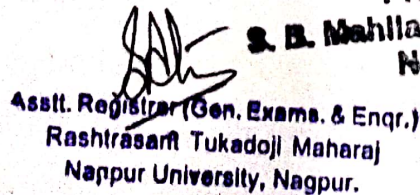 S. B. Mahila
N
Asstt. Registrar (Gen. Exams. & Enqr.)
Rashtrasant Tukadoji Maharaj
Nagpur University, Nagpur.